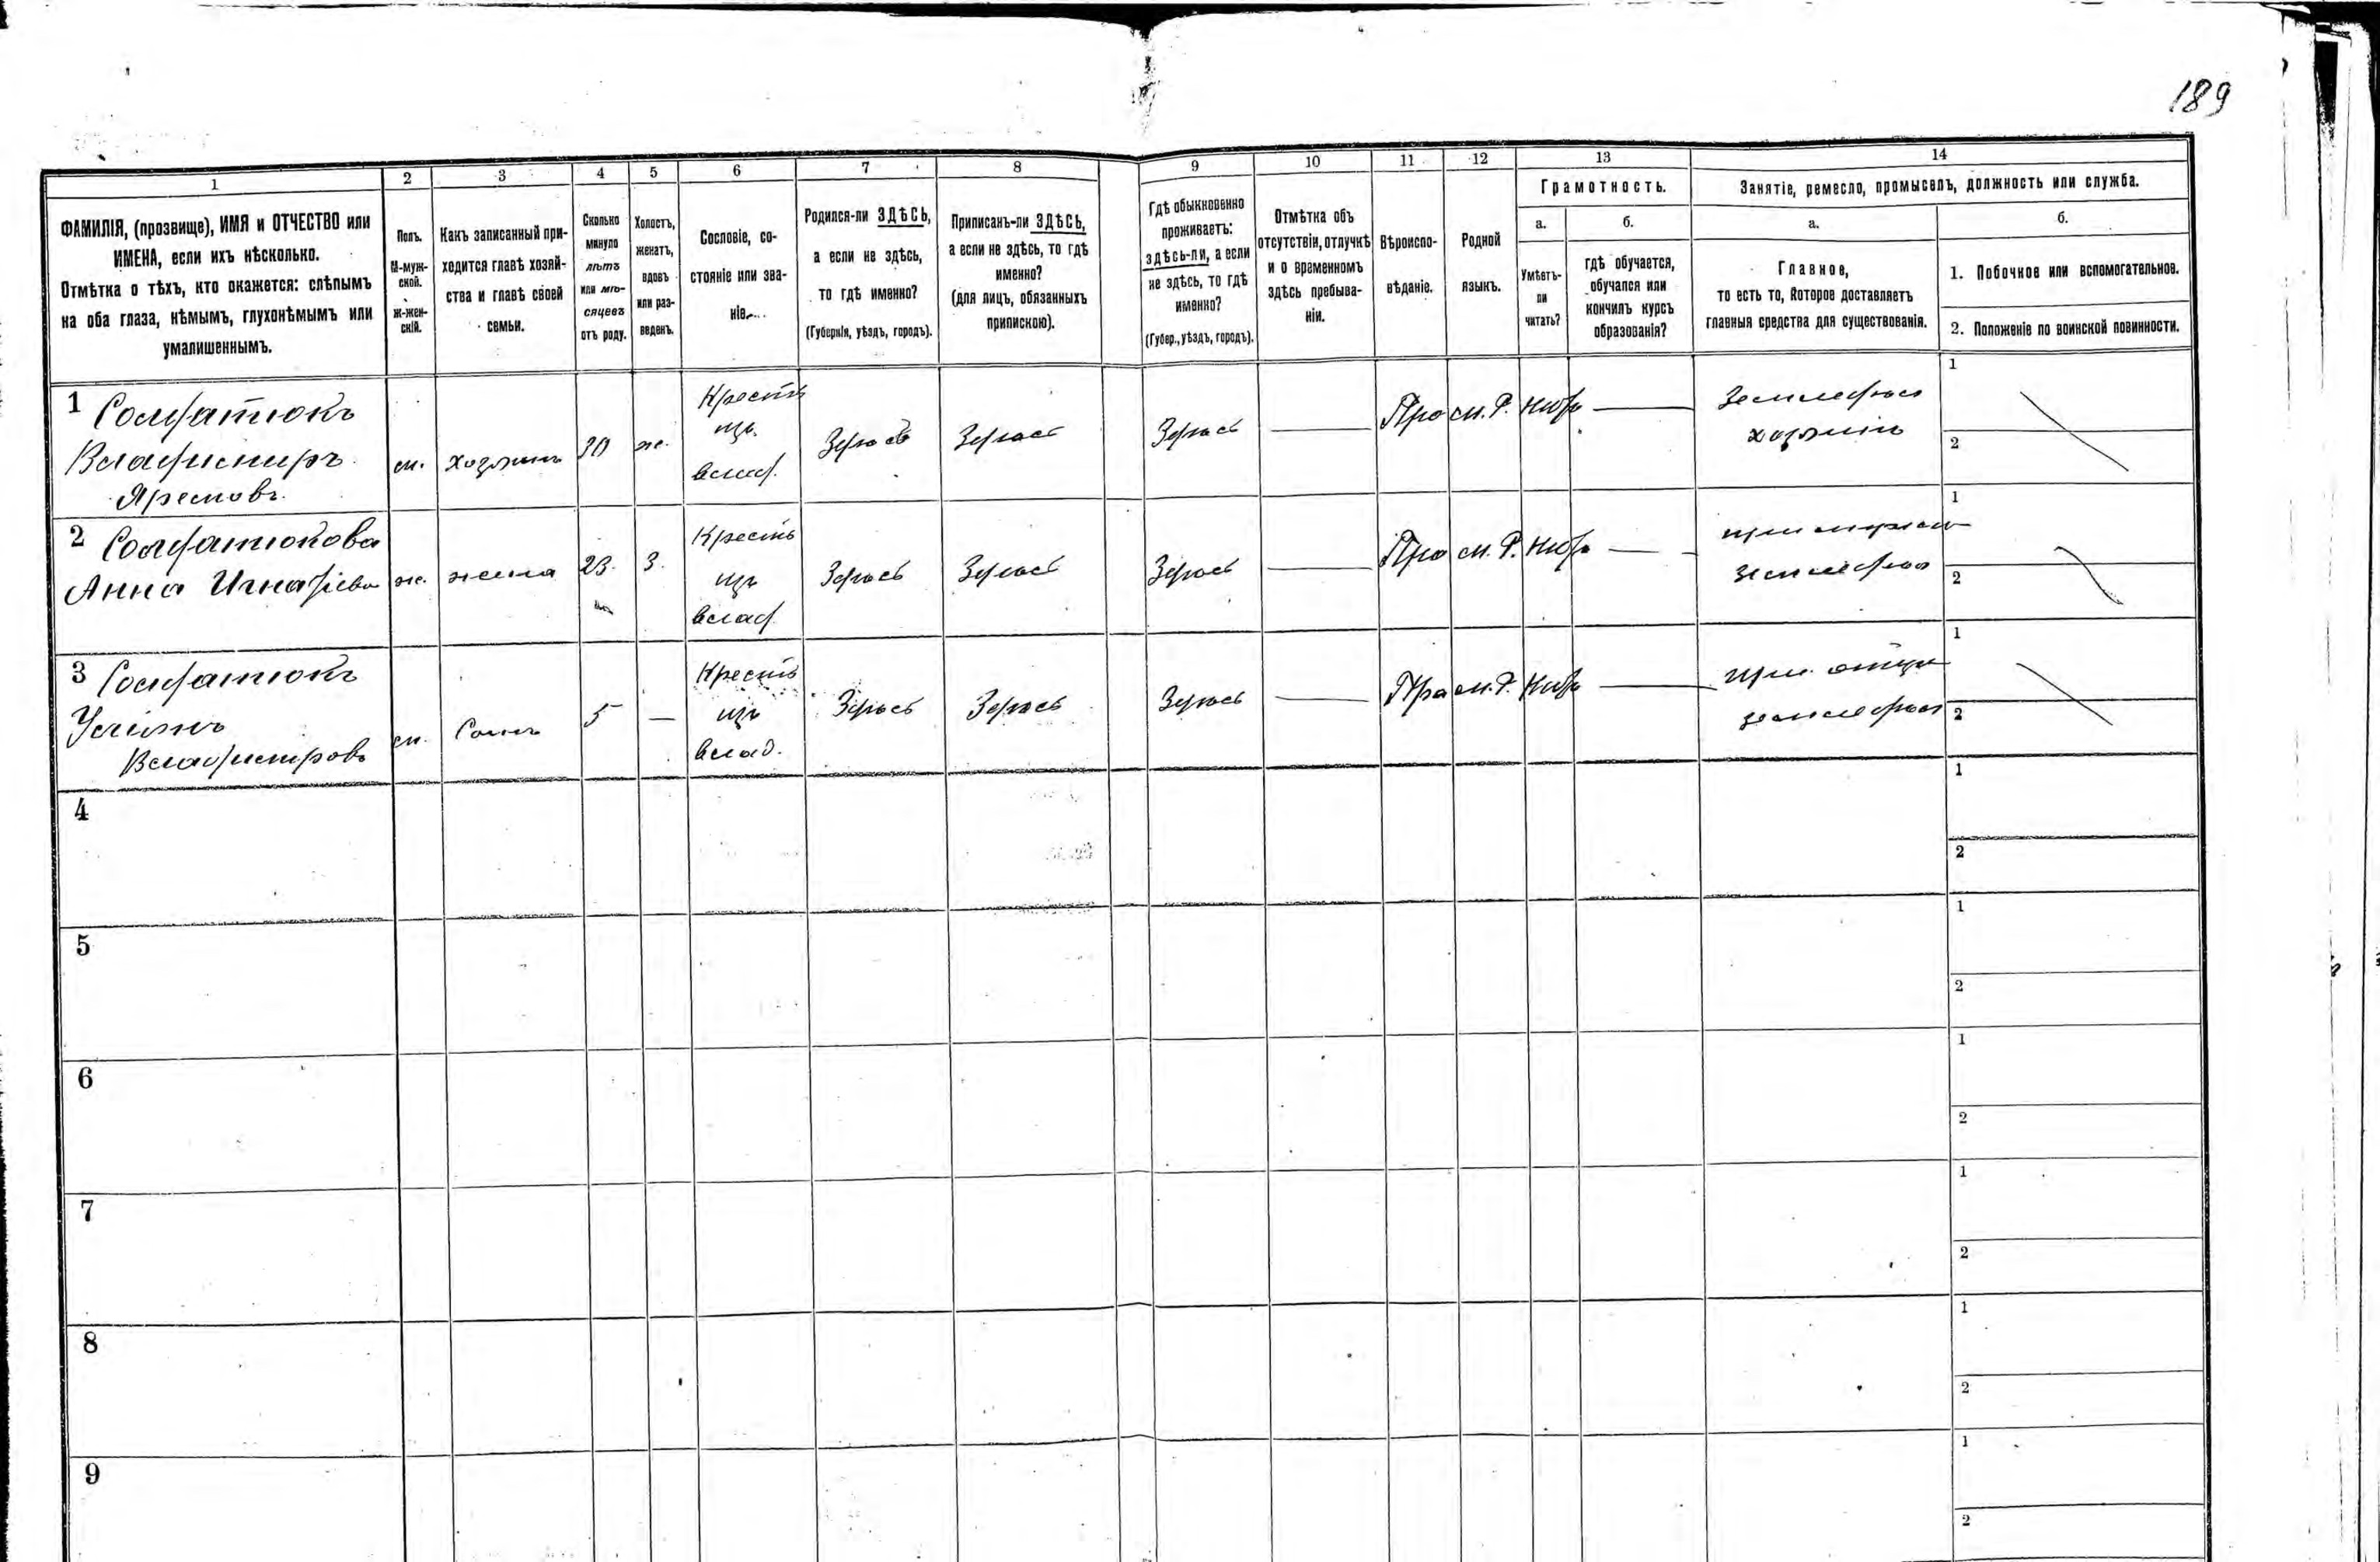 189
1 2 3 4 5 6 7 8 9 10 11 12 13 14
ФАМИЛІЯ, (прозвище), ИМЯ и ОТЧЕСТВО или
ИМЕНА, если ихъ нѣсколько.
Отмѣтка о тѣхъ, кто окажется: слѣпымъ
на оба глаза, нѣмымъ, глухонѣмымъ или
умалишеннымъ.
Полъ.
М-муж-
ской.
ж-жен-
скій.
Какъ записанный при-
ходится главѣ хозяй-
ства и главѣ своей
семьи.
Сколько
минуло
лѣтъ
или мѣ-
сяцевъ
отъ роду.
Холостъ,
женатъ,
вдовъ
или раз-
веденъ.
Сословіе, со-
стояніе или зва-
ніе.
Родился-ли ЗДѢСЬ,
а если не здѣсь,
то гдѣ именно?
(Губернія, уѣздъ, городъ).
Приписанъ-ли ЗДѢСЬ,
а если не здѣсь, то гдѣ
именно?
(для лицъ, обязанныхъ
припискою).
Гдѣ обыкновенно
проживаетъ:
здѣсь-ли, а если
не здѣсь, то гдѣ
именно?
(Губер., уѣздъ, городъ).
Отмѣтка объ
отсутствіи, отлучкѣ
и о временномъ
здѣсь пребыва-
ніи.
Вѣроиспо-
вѣданіе.
Родной
языкъ.
Грамотность.
а.
Умѣетъ-
ли
читать?
б.
гдѣ обучается,
обучался или
кончилъ курсъ
образованія?
Занятіе, ремесло, промыселъ, должность или служба.
а.
Главное,
то есть то, которое доставляетъ
главныя средства для существованія.
б.
1. Побочное или вспомогательное.
2. Положеніе по воинской повинности.
1 Солдатюкъ
Владимиръ
Яремовъ
м.
Хозяинъ
30
ж.
Крестн
изъ
влад.
Здѣсь
Здѣсь
Здѣсь
Пра
м.Р.
Нѣтъ
Земледѣл
хозяинъ
1
2
2 Солдатюкова
Анна Игнатіева
ж.
жена
23.
З.
Крестн
изъ
влад
Здѣсь
Здѣсь
Здѣсь
Пра
м.Р.
Нѣтъ
при мужѣ
земледѣл
1
2
3 Солдатюкъ
Владимировъ
м.
Сынъ
5
Крестн
изъ
влад.
Здѣсь
Здѣсь
Здѣсь
Пра
м.Р.
Нѣтъ
при отцѣ
земледѣл
1
2
4
1
2
5
1
2
6
1
2
7
1
2
8
1
2
9
1
2